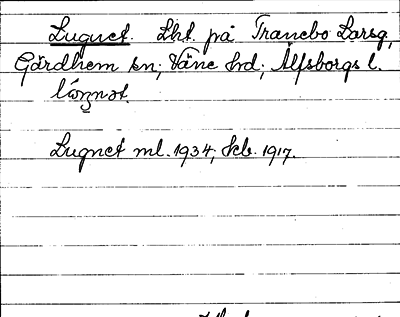 Lugnet. Lht. på Tranebo Larsg,
Gärdhem sn; Väne hd; Älfsborgs l.
Lugnet ml. 1934, kb. 1917.